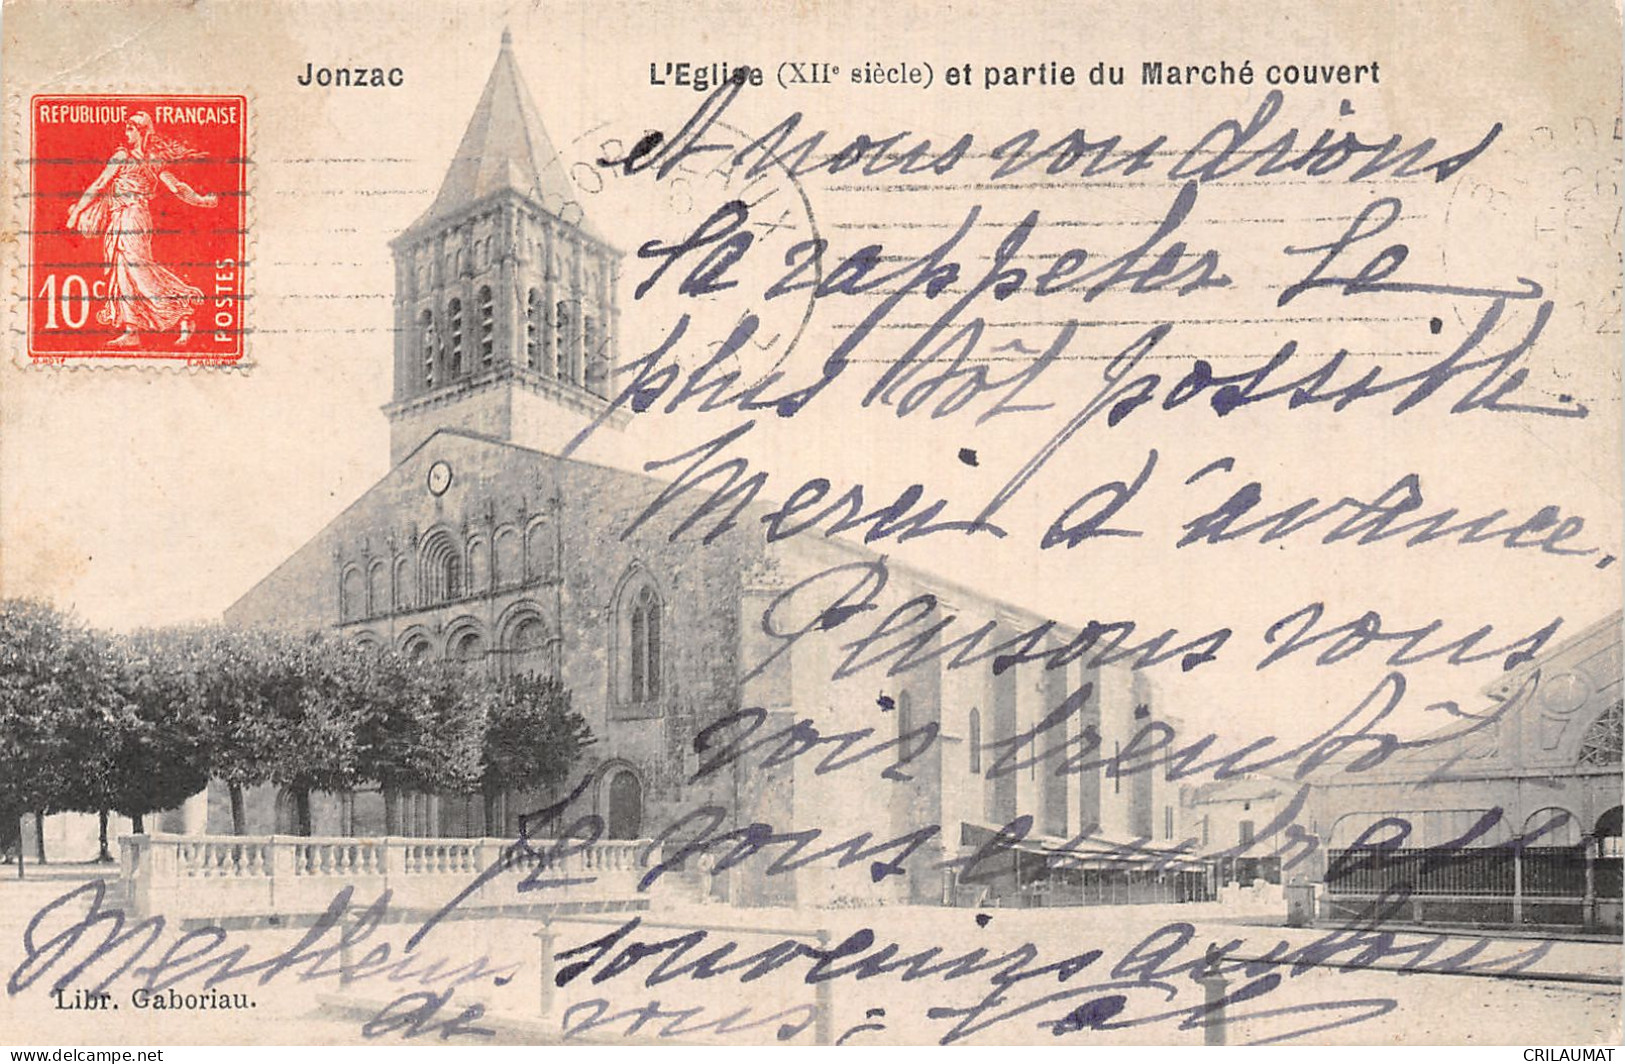 Jonzac
L'Eglise (XIIe siècle) et partie du Marché couvert
REPUBLIQUE FRANÇAISE
10c
POSTES
BORDEAUX
et nous voudrions
la rappeler le
plus tôt possible.
Merci d'avance.
Pensons vous
voir bientôt
Je vous embrasse
Meilleurs souvenirs à tous
de vous = Val
Libr. Gaboriau.
http://www.delcampe.net
CRILAUMAT